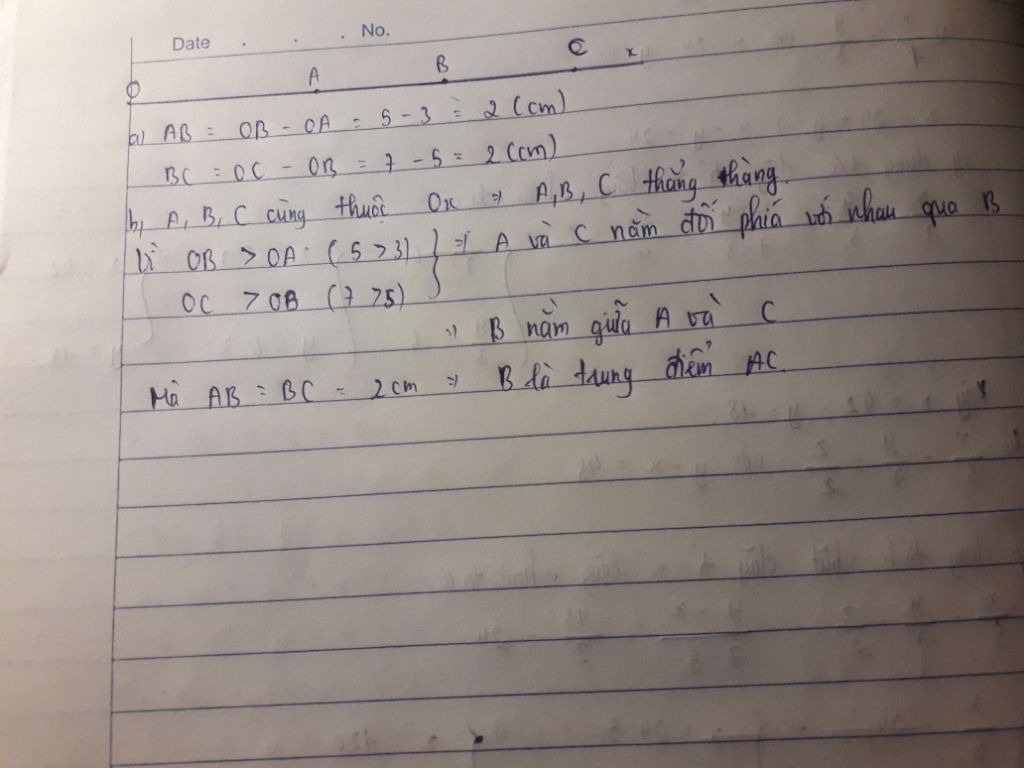 Date . . . No.
O A B C x
a) AB = OB - OA = 5 - 3 = 2 (cm)
BC = OC - OB = 7 - 5 = 2 (cm)
b, A, B, C cùng thuộc Ox => A, B, C thẳng hàng.
Vì OB > OA (5 > 3) } => A và C nằm đối phiá với nhau qua B
OC > OB (7 > 5)
=> B nằm giữa A và C
Mà AB = BC = 2cm => B là trung điểm AC.